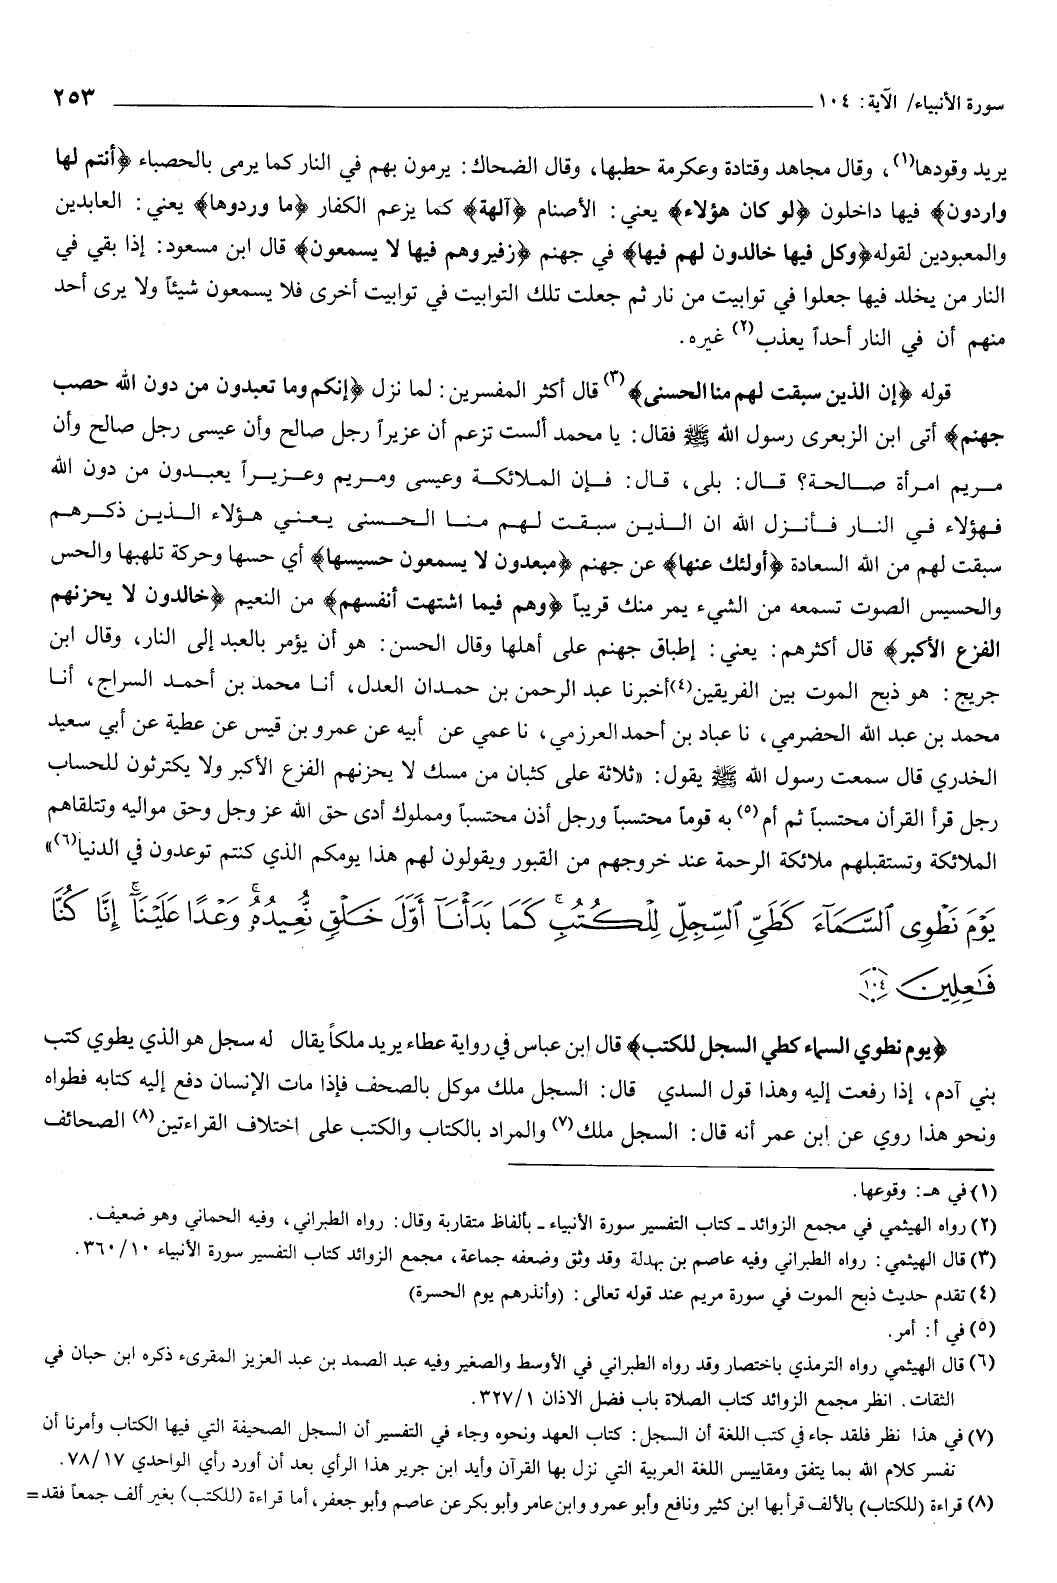 سورة الأنبياء/ الآية: ١٠٤ ٢٥٣
يريد وقودها(١)، وقال مجاهد وقتادة وعكرمة حطبها، وقال الضحاك: يرمون بهم في النار كما يرمى بالحصباء ﴿أنتم لها
واردون﴾ فيها داخلون ﴿لو كان هؤلاء﴾ يعني: الأصنام ﴿آلهة﴾ كما يزعم الكفار ﴿ما وردوها﴾ يعني: العابدين
والمعبودين لقوله ﴿وكل فيها خالدون لهم فيها﴾ في جهنم ﴿زفير وهم فيها لا يسمعون﴾ قال ابن مسعود: إذا بقي في
النار من يخلد فيها جعلوا في توابيت من نار ثم جعلت تلك التوابيت في توابيت أخرى فلا يسمعون شيئاً ولا يرى أحد
منهم أن في النار أحداً يعذب(٢) غيره.
قوله ﴿إن الذين سبقت لهم منا الحسنى﴾(٣) قال أكثر المفسرين: لما نزل ﴿إنكم وما تعبدون من دون الله حصب
جهنم﴾ أتى ابن الزبعرى رسول الله ﷺ فقال: يا محمد ألست تزعم أن عزيراً رجل صالح وأن عيسى رجل صالح وأن
مريم امرأة صالحة؟ قال: بلى، قال: فإن الملائكة وعيسى ومريم وعزيراً يعبدون من دون الله
فهؤلاء في النار فأنزل الله ان الذين سبقت لهم منا الحسنى يعني هؤلاء الذين ذكرهم
سبقت لهم من الله السعادة ﴿أولئك عنها﴾ عن جهنم ﴿مبعدون لا يسمعون حسيسها﴾ أي حسها وحركة تلهبها والحس
والحسيس الصوت تسمعه من الشيء يمر منك قريباً ﴿وهم فيما اشتهت أنفسهم﴾ من النعيم ﴿خالدون لا يحزنهم
الفزع الأكبر﴾ قال أكثرهم: يعني: إطباق جهنم على أهلها وقال الحسن: هو أن يؤمر بالعبد إلى النار، وقال ابن
جريج: هو ذبح الموت بين الفريقين(٤) أخبرنا عبد الرحمن بن حمدان العدل، أنا محمد بن أحمد السراج، أنا
محمد بن عبد الله الحضرمي، نا عباد بن أحمد العرزمي، نا عمي عن أبيه عن عمرو بن قيس عن عطية عن أبي سعيد
الخدري قال سمعت رسول الله ﷺ يقول: «ثلاثة على كثبان من مسك لا يحزنهم الفزع الأكبر ولا يكترثون للحساب
رجل قرأ القرأن محتسباً ثم أم(٥) به قوماً محتسباً ورجل أذن محتسباً ومملوك أدى حق الله عز وجل وحق مواليه وتتلقاهم
الملائكة وتستقبلهم ملائكة الرحمة عند خروجهم من القبور ويقولون لهم هذا يومكم الذي كنتم توعدون في الدنيا(٦)»
يَوْمَ نَطْوِى ٱلسَّمَآءَ كَطَيِّ ٱلسِّجِلِّ لِلْكُتُبِ ۚ كَمَا بَدَأْنَآ أَوَّلَ خَلْقٍ نُّعِيدُهُۥ ۚ وَعْدًا عَلَيْنَآ ۚ إِنَّا كُنَّا
فَـٰعِلِينَ ١٠٤
﴿يوم نطوي السماء كطي السجل للكتب﴾ قال ابن عباس في رواية عطاء يريد ملكاً يقال له سجل هو الذي يطوي كتب
بني آدم، إذا رفعت إليه وهذا قول السدي قال: السجل ملك موكل بالصحف فإذا مات الإنسان دفع إليه كتابه فطواه
ونحو هذا روي عن ابن عمر أنه قال: السجل ملك(٧) والمراد بالكتاب والكتب على اختلاف القراءتين(٨) الصحائف
(١) في هـ: وقوعها.
(٢) رواه الهيثمي في مجمع الزوائد - كتاب التفسير سورة الأنبياء - بألفاظ متقاربة وقال: رواه الطبراني، وفيه الحماني وهو ضعيف.
(٣) قال الهيثمي: رواه الطبراني وفيه عاصم بن بهدلة وقد وثق وضعفه جماعة، مجمع الزوائد كتاب التفسير سورة الأنبياء ١٠/٣٦٠.
(٤) تقدم حديث ذبح الموت في سورة مريم عند قوله تعالى: (وأنذرهم يوم الحسرة)
(٥) في أ: أمر.
(٦) قال الهيثمي رواه الترمذي باختصار وقد رواه الطبراني في الأوسط والصغير وفيه عبد الصمد بن عبد العزيز المقرىء ذكره ابن حبان في
الثقات. انظر مجمع الزوائد كتاب الصلاة باب فضل الاذان ١/٣٢٧.
(٧) في هذا نظر فلقد جاء في كتب اللغة أن السجل: كتاب العهد ونحوه وجاء في التفسير أن السجل الصحيفة التي فيها الكتاب وأمرنا أن
نفسر كلام الله بما يتفق ومقاييس اللغة العربية التي نزل بها القرآن وأيد ابن جرير هذا الرأي بعد أن أورد رأي الواحدي ١٧/٧٨.
(٨) قراءة (للكتاب) بالألف قرأ بها ابن كثير ونافع وأبو عمرو وابن عامر وأبو بكر عن عاصم وأبو جعفر، أما قراءة (للكتب) بغير ألف جمعاً فقد =